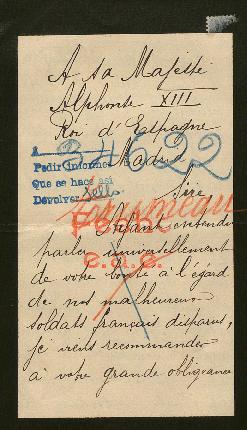 A Sa Majesté
Alphonse XIII
Roi d'Espagne
Madrid
A
34622
Pedir informes
Que se hace así
Devolver sell.
Sire
Ayant entendu
parler universellement
de votre bonté à l'égard
de nos malheureux
soldats français disparus,
je viens recommander
à votre grande obligeance